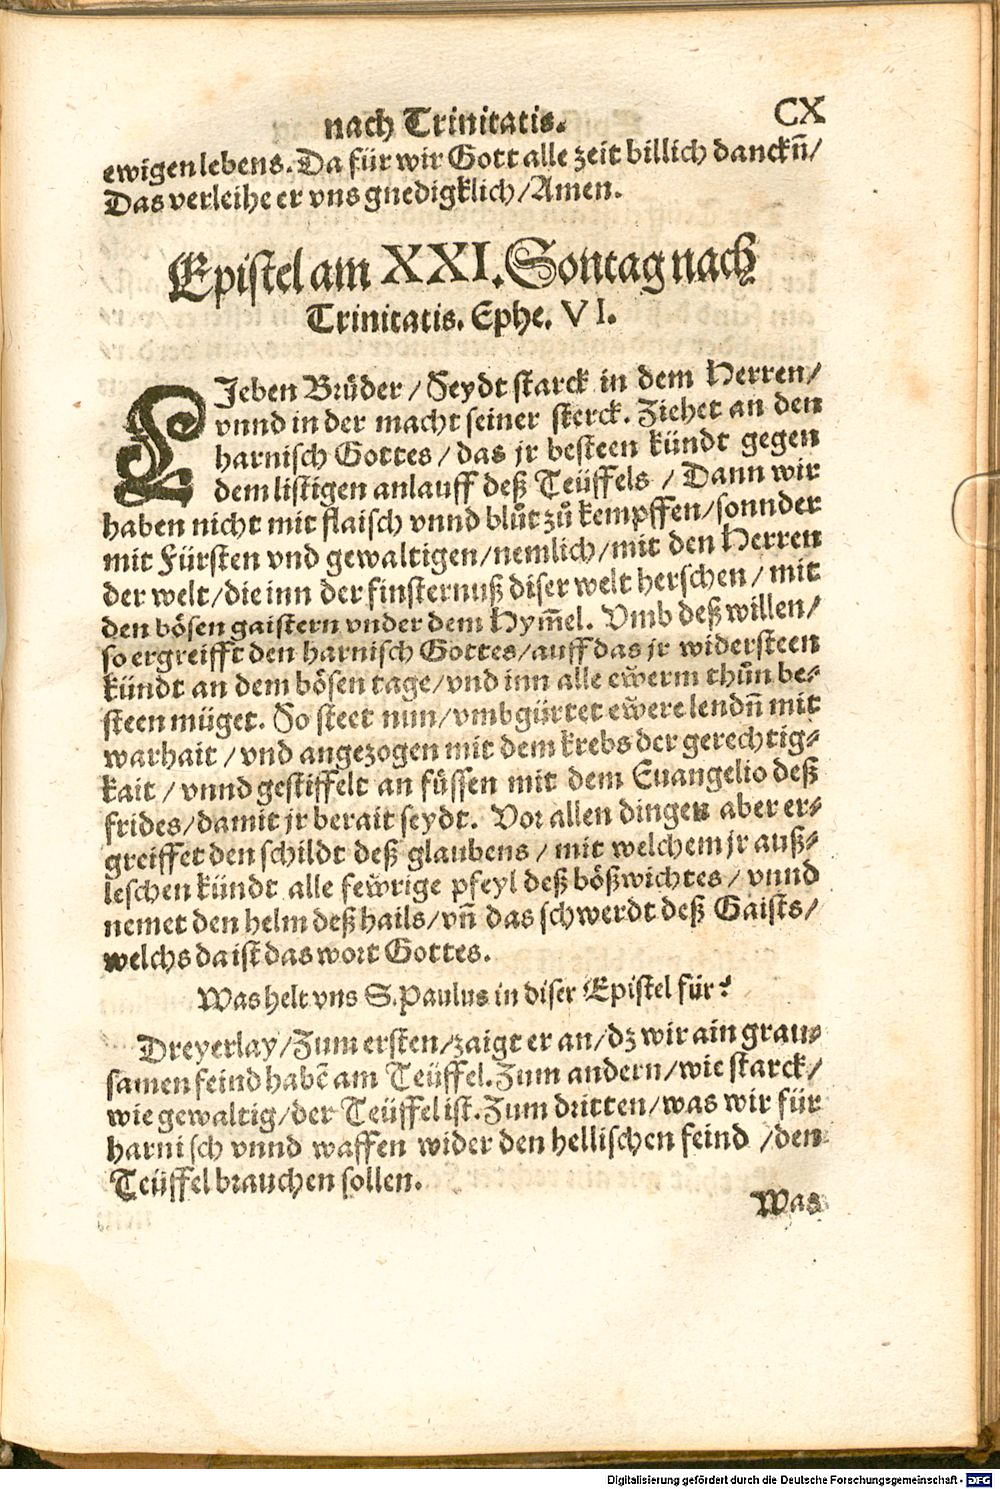 nach Trinitatis. CX
ewigen lebens. Da für wir Gott alle zeit billich danckñ/
Das verleihe er vns gnedigklich/Amen.
Epistel am XXI. Sontag nach
Trinitatis. Ephe. VI.
LJeben Brüder / Seydt starck in dem Herren/
vnnd in der macht seiner sterck. Ziehet an den
harnisch Gottes / das jr besteen kündt gegen
dem listigen anlauff deß Teüffels / Dann wir
haben nicht mit flaisch vnnd blůt zů kempffen/sonnder
mit Fürsten vnd gewaltigen/nemlich/mit den Herren
der welt/die inn der finsternuß diser welt herschen/ mit
den bösen gaistern vnder dem Hym̃el. Vmb deß willen/
so ergreifft den harnisch Gottes/auff das jr widersteen
kündt an dem bösen tage/vnd inn alle ewerm thůn be-
steen müget. So steet nun/vmbgürtet ewere lendñ mit
warhait / vnd angezogen mit dem krebs der gerechtig-
kait / vnnd gestiffelt an füssen mit dem Euangelio deß
frides/damit jr berait seydt. Vor allen dingen aber er-
greiffet den schildt deß glaubens / mit welchem jr auß-
leschen kündt alle fewrige pfeyl deß bößwichtes / vnnd
nemet den helm deß hails/vñ das schwerdt deß Gaists/
welchs da ist das wort Gottes.
Was helt vns S. Paulus in diser Epistel für?
Dreyerlay/Zum ersten/zaigt er an/dz wir ain grau-
samen feind habẽ am Teüffel. Zum andern/wie starck/
wie gewaltig/der Teüffel ist. Zum dritten/was wir für
harnisch vnnd waffen wider den hellischen feind /den
Teüffel brauchen sollen.
Was
Digitalisierung gefördert durch die Deutsche Forschungsgemeinschaft - DFG